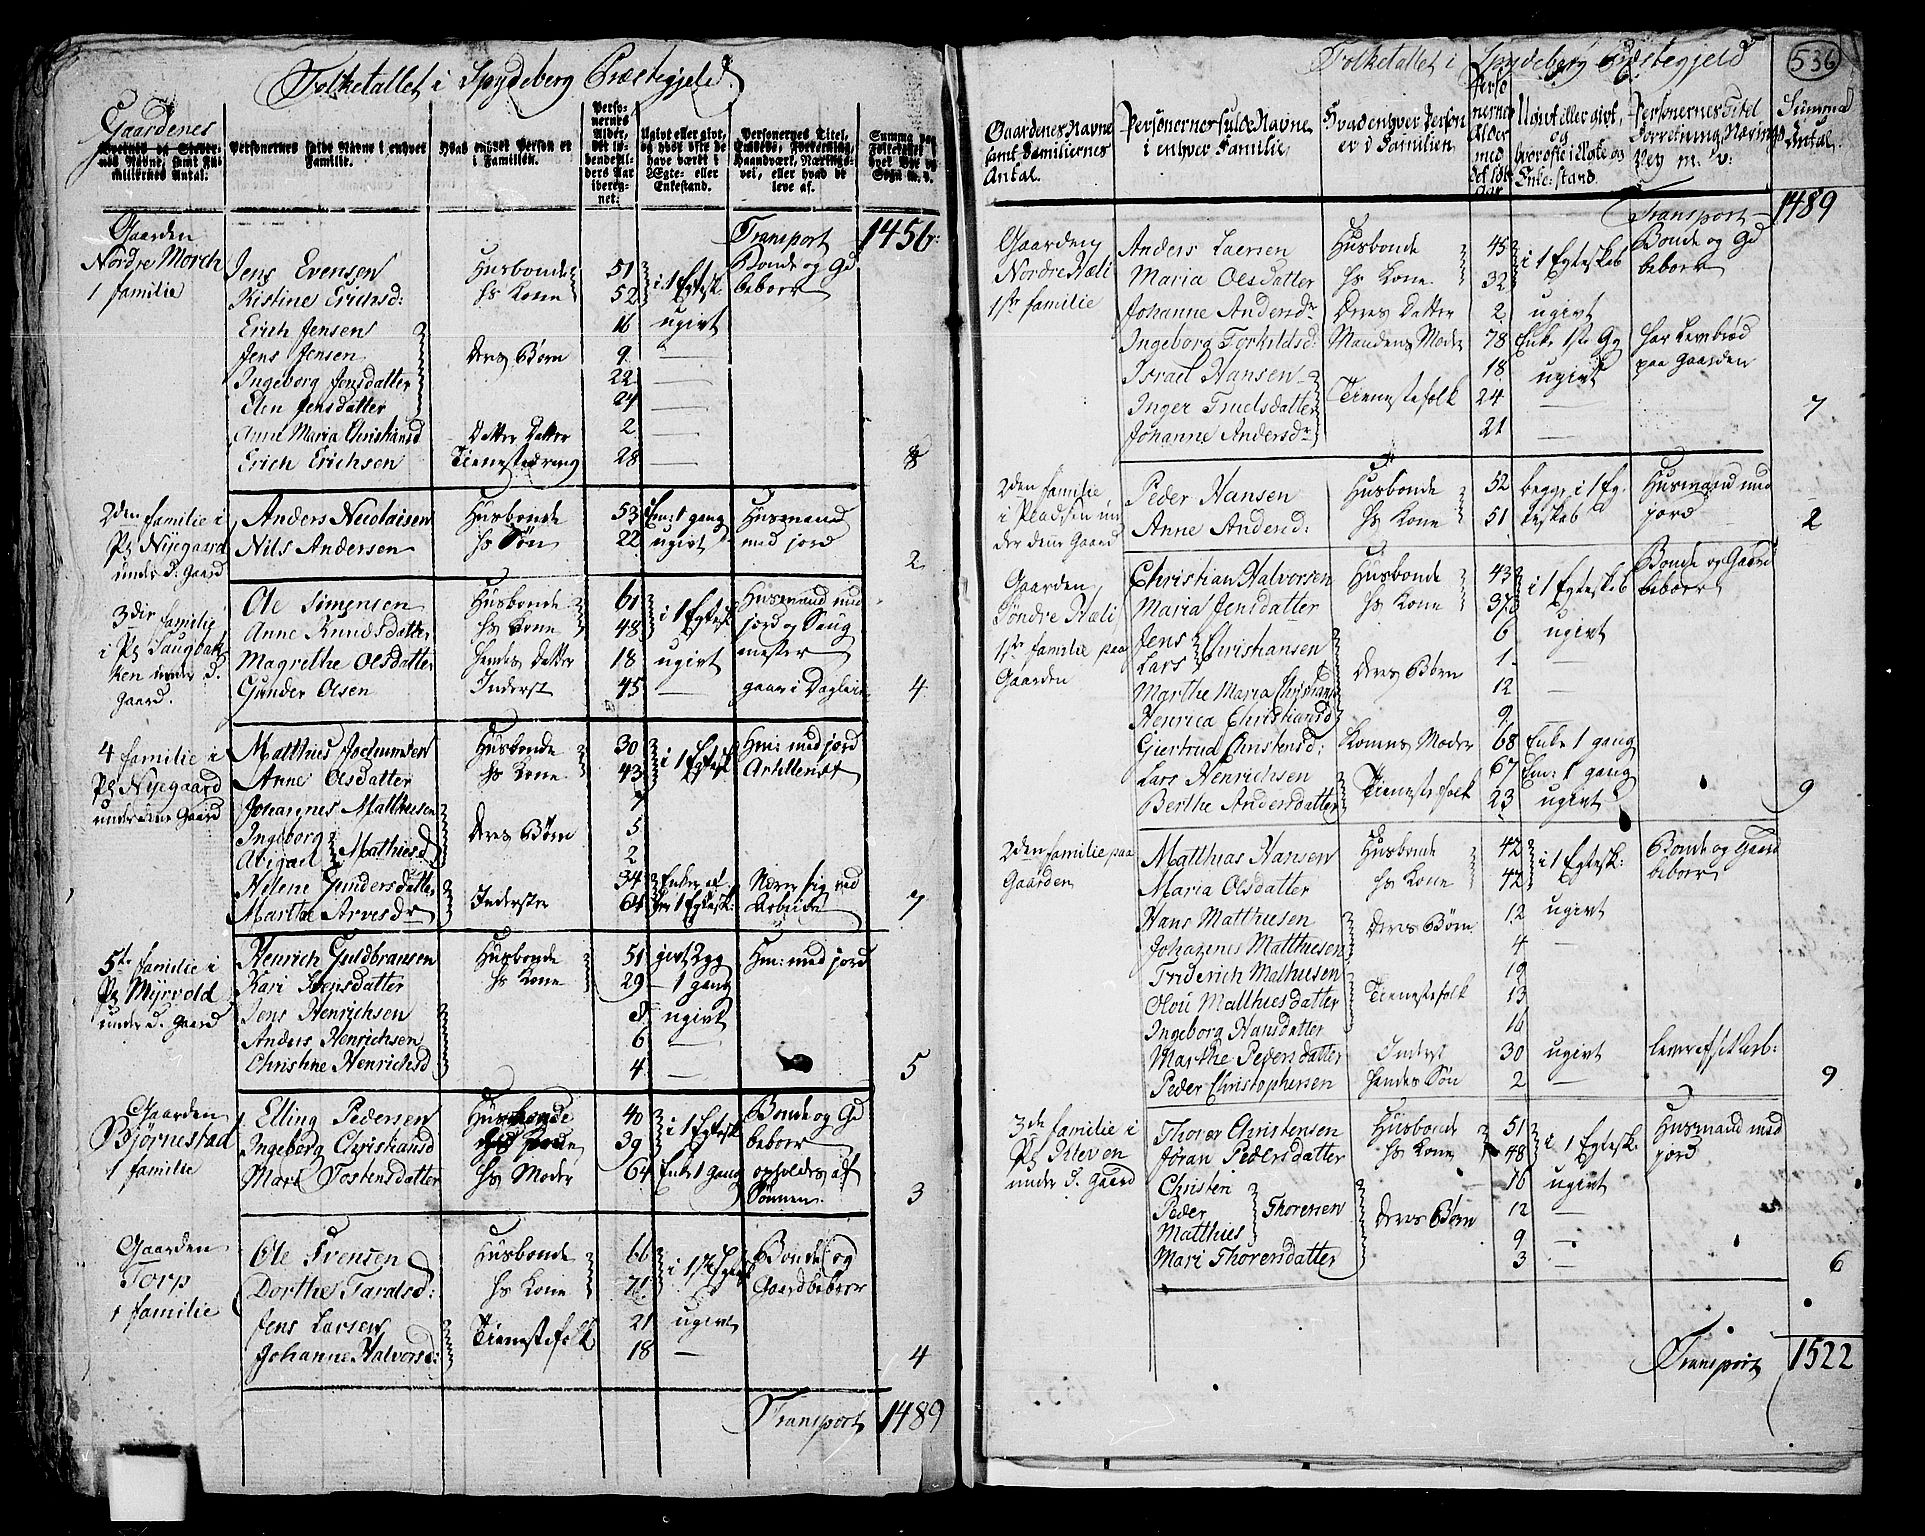 Folketallet i Spydeberg Præstegjeld
Gaardenes
Navne, samt Familiernes Antal:
Personernes fulde Navne i enhver Familie.
Hvad enhver Person er i Familien.
Personernes Alder, det løbende Alders Aar iberegnet.
Ugivt eller givt, og hvor ofte de have været i Egte- eller Enkestand.
Personernes Titel, Embede, Forretning, Haandværk, Næringsvei, eller hvad de leve af.
Summa paa Folketallet
Transport 1456
Gaarden
Nordre Morch
1 familie
Jens Evensen Husbonde 51 i 1 Egtesk Bonde og Gd
Kistine Erichsd: Hs Kone 52 beboer
Erich Jensen 16 ugivt
Jens Jensen Deres Børn 9 —
Ingeborg Jensdatter 22 —
Elen Jensdatter 24 —
Anne Maria Christiansd Datter Datter 2 —
Erich Erichsen Tienestedreng 28 — 8
2den familie i
Pl Nyegaard
under d: Gaard
Anders Nicolaisen Husbonde 53 Em: 1 gang Husmand
Nils Andersen Hs Søn 22 ugivt med jord 2
3die familie
i Pl Saugbak
ken under d.
Gaard.
Ole Simensen Husbonde 61 i 1 Egtesk Husmand med
Anne Knudsdatter Hs Kone 48 jord og Saug
Magrethe Olsdatter Hendes Datter 18 ugivt mester
Gunder Olsen Inderst 45 — gaar i Dagleie 4
4 familie i
Pl Nyegaard
under denne Gaard
Matthies Jochumsen Husbonde 30 i 1 Egtesk Hm: med jord
Anne Olsdatter Hs Kone 43 Artillerist
Johannes Matthiesen 7
Ingeborg Deres Børn 5
Abigael Mathiesd 2
Helene Gundersdatter Inderster 34 Enker af Nærer sig ved
Marthe Arvesdr 64 1 Egtesk: 7
5te familie i
Pl Myrvold
under d. Gaard
Henrich Guldbransen Husbonde 51 givt 2 gg Hm: med jord
Kari Jensdatter Hs Kone 29 — 1 gang
Jens Henrichsen 8 ugivt
Anders Henrichsen 6 —
Christine Henrichsd 4 — 5
Gaarden
Bjørnestad
1 familie
Elling Pedersen Husbonde 40 i 1 Egtesk Bonde og Gd
Ingeborg Christiansd Hs Kone 39 beboer
Mari Tostensdatter Hs Moder 64 Enke 1 gang opholdes af
Sønnen 3
Gaarden
Torp
1 familie
Ole Svensen Husbonde 66 i 1ste Egtesk Bonde og
Dorthe Taralsd: Hs Kone 71 Gaardbeboer
Jens Larsen Tienestefolk 21 ugivt
Johanne Halvorsd: 18 — 4
Transport 1489
536
Folketallet i Spydeberg Præstegjeld
Gaardenes Navne samt Familiernes Antal.
Personernes fulde Navne i enhver Familie
Hvad enhver Person er i Familien
Personernes Alder med det løbende Aar
Ugivt eller givt, og hvor ofte i Egte og Enke: stand
Personernes Titel Forretning, Nærings Vey m. v:
Summa Antal.
Transport — 1489
Gaarden
Nordre Hæli
1ste familie
Anders Larsen Husbonde 45 i 1 Egteskab Bonde og Gd
Maria Olsdatter Hs Kone 32 beboer
Johanne Andersdr Deres Datter 2 ugivt
Ingeborg Torkildsd: Mandens Moder 78 Enke 1ste Gg har Levebrød
Israel Hansen 18 ugivt paa Gaarden
Inger Truelsdatter Tienestefolk 24 — 7
Johanne Andersdr 21 —
2den familie
i Pladsen un
der denne Gaard
Peder Hansen Husbonde 52 begge i 1 Eg: Husmand med
Anne Andersd: Hs Kone 51 teskab jord 2
Gaarden
Søndre Hæli
1ste familie paa
Gaarden
Christian Halvorsen Husbonde 43 i 1 Egteskab Bonde og Gaard
Maria Jensdatter Hs Kone 37 beboer
Jens Christiansen 6 ugivt
Lars Deres Børn 1 —
Marthe Maria Christiansd 12 —
Henrica Christiansd 9
Giertrud Christensd: Konens Moder 68 Enke 1 gang
Lars Henrichsen Tienestefolk 67 Em: 1 gang
Berthe Andersdatter 23 ugivt 9
2den familie paa
Gaarden
Matthias Hansen Husbonde 42 i 1 Egtesk: Bonde og Gaard
Maria Olsdatter Hs Kone 42 beboer
Hans Matthiesen Deres Børn 12 ugivt
Johannes Matthiesen 4 —
Friderich Mathiesen 19
Olou Matthiesdatter Tienestefolk 13
Ingeborg Hansdatter 16
Marthe Pedersdatter Inderst 30 ugivt lever af sit Arb:
Peder Christophersen Hendes Søn 2 — 9
3de familie i
Pl
under d. Gaard
Thorer Christensen Husbonde 51 i 1 Egtesk: Husmand med
Jøran Pedersdatter Hs Kone 48 jord
Christen 16 ugivt
Peder Thorersen Deres Børn 12 —
Matthies 9 —
Mari Thorersdatter 3 — 6
Transport 1522